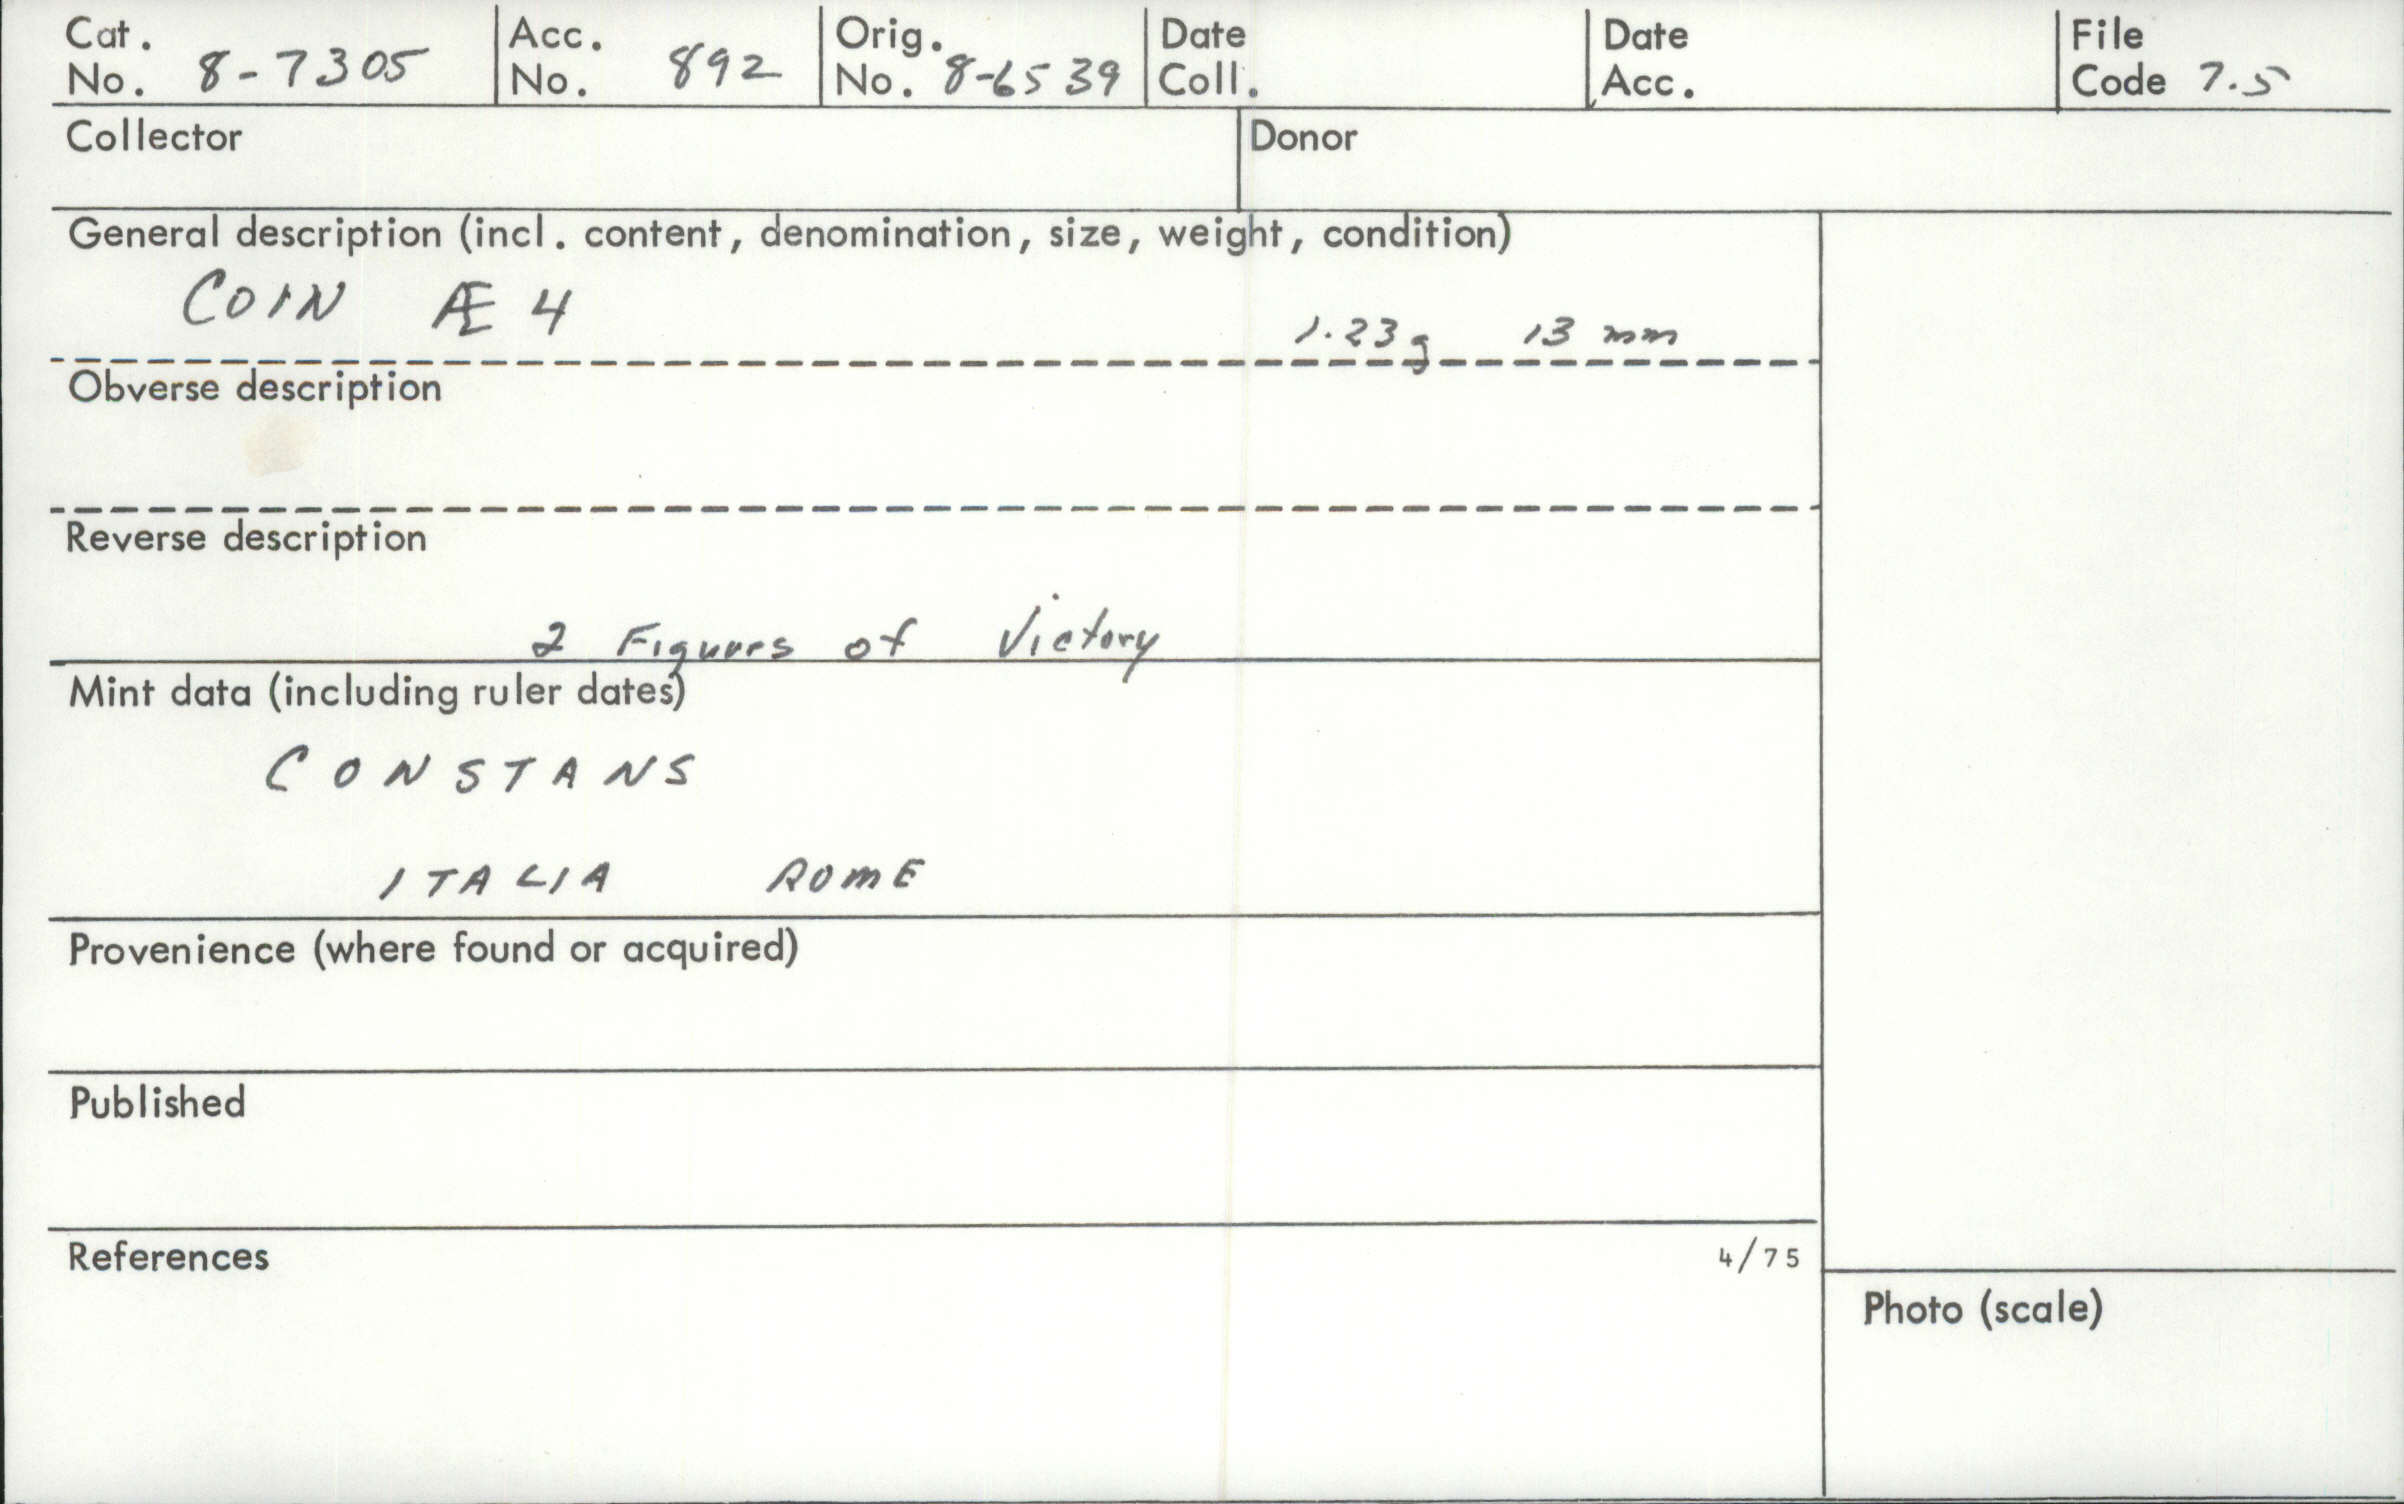 Cat. No. 8-7305 Acc. No. 892 Orig. No. 8-6539 Date Coll. Date Acc. File Code 7.5
Collector Donor
General description (incl. content, denomination, size, weight, condition)
COIN Æ 4 1.23g 13 mm
Obverse description
Reverse description
2 Figures of Victory
Mint data (including ruler dates)
CONSTANS
ITALIA ROME
Provenience (where found or acquired)
Published
References 4/75
Photo (scale)